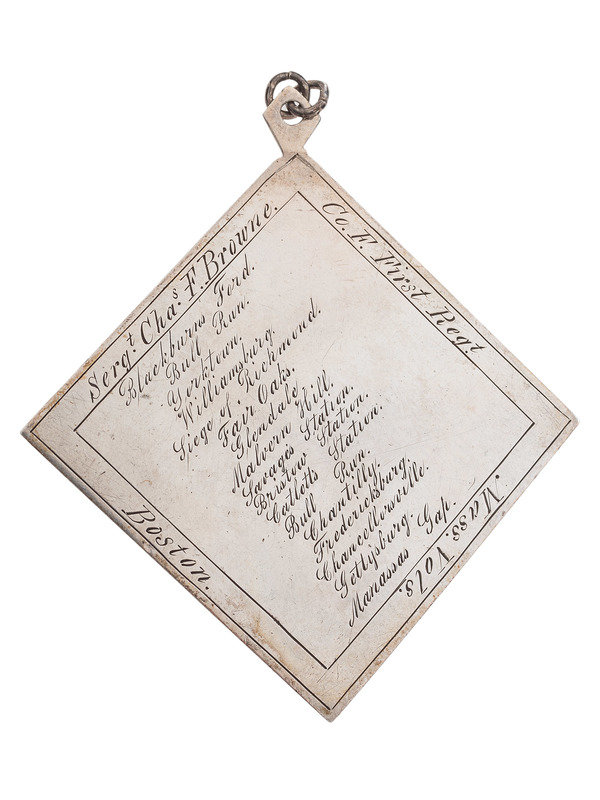 Sergt. Chas. F. Browne.
Co. F. First Regt.
Mass. Vols.
Boston.
Blackburns Ford.
Bull Run.
Yorktown.
Williamsburg.
Siege of Richmond.
Fair Oaks.
Glendale.
Malvern Hill.
Savages Station.
Bristow Station.
Catletts Station.
Bull Run.
Chantilly.
Fredericksburg.
Chancellorsville.
Gettysburg.
Manassas Gap.